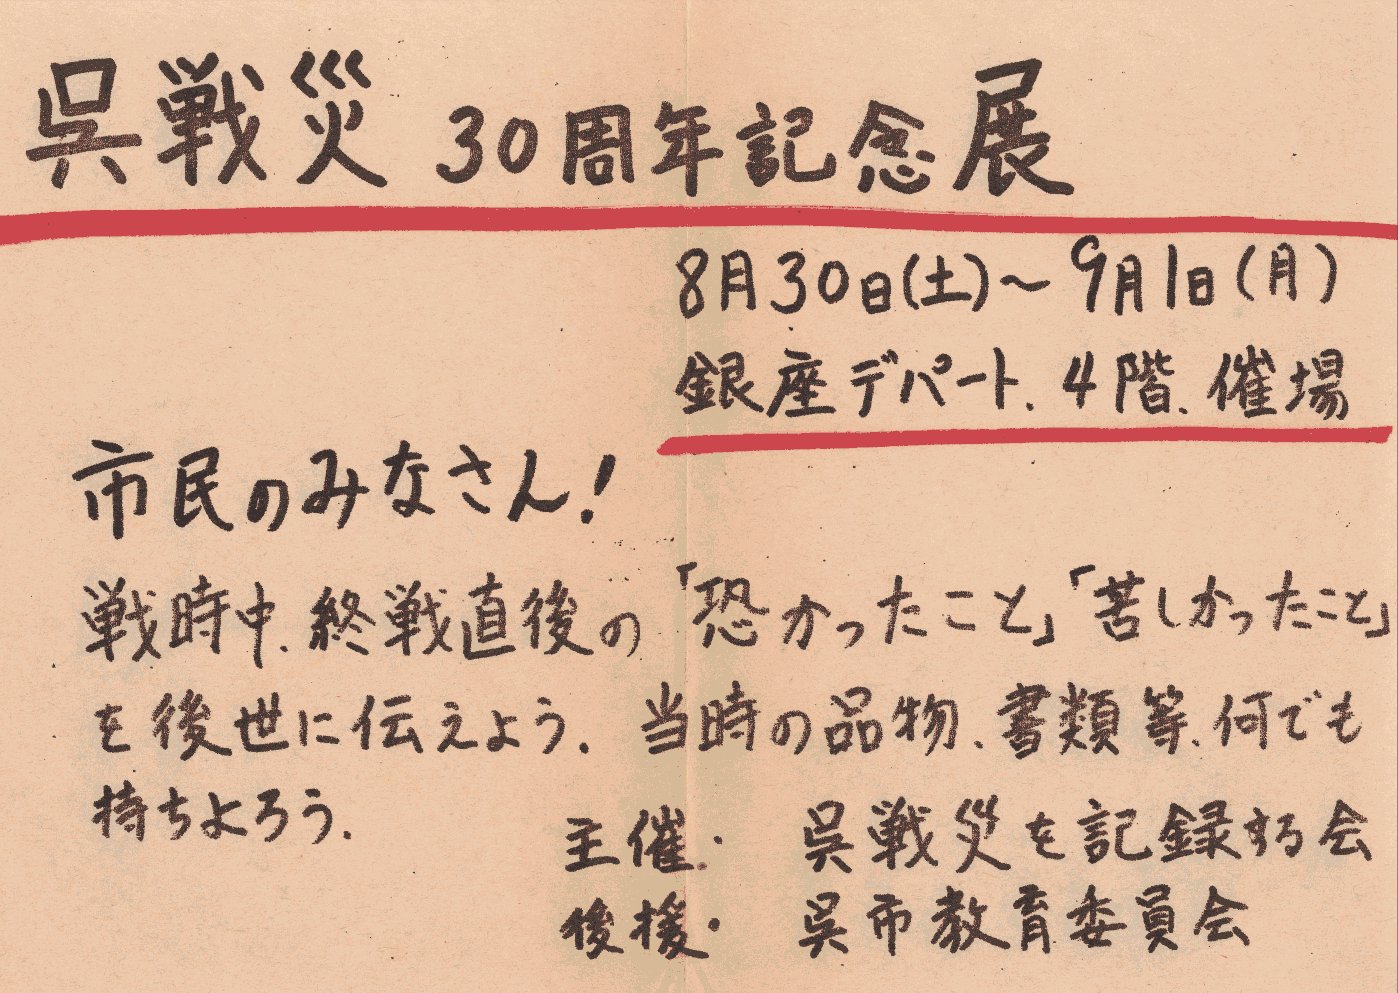 呉戦災 30周年記念展
8月30日(土)～9月1日(月)
銀座デパート.4階.催場
市民のみなさん!
戦時中.終戦直後の「恐かったこと」「苦しかったこと」
を後世に伝えよう. 当時の品物.書類等.何でも
持ちよろう.
主催・ 呉戦災を記録する会
後援・ 呉市教育委員会